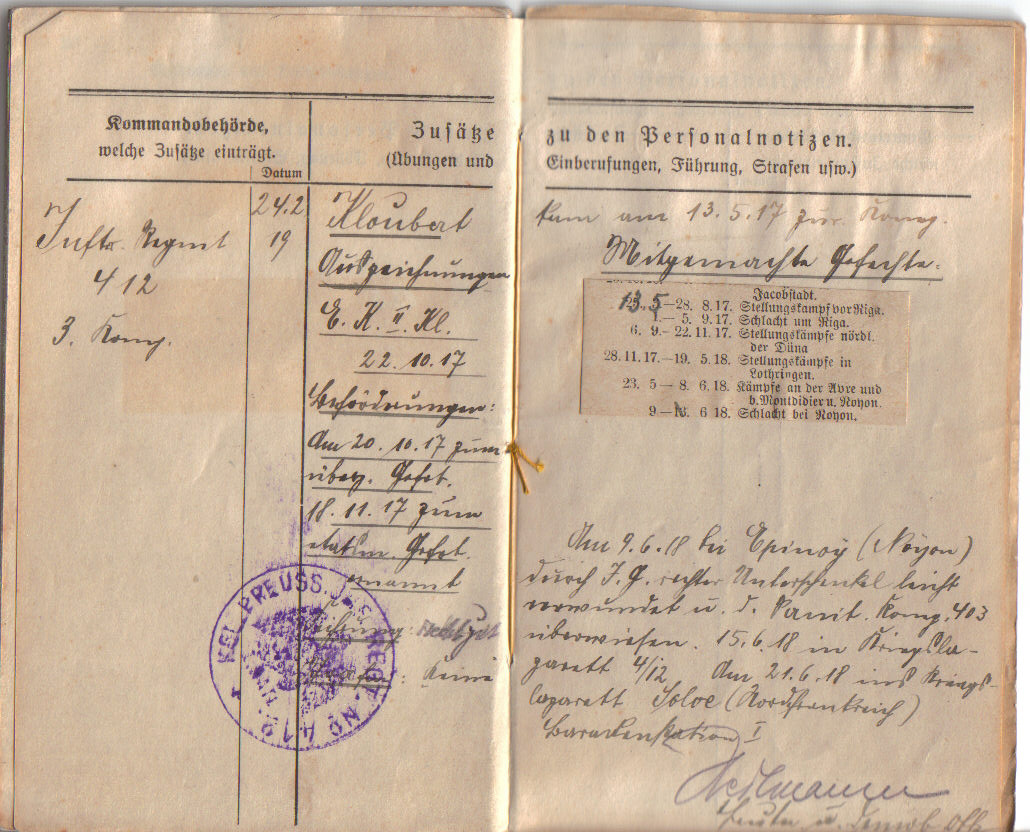 Kommandobehörde,
welche Zusätze einträgt.
Datum
Zusätze
(Übungen und
Inftr. Regmt
412
3. Komp.
24.2
19
Kloubert
Auszeichnungen
E. K. II. Kl.
22.10.17
Beförderungen:
Am 20.10.17 zum
überz. Gefrt.
18.11.17 zum
etatsm. Gefrt.
ernannt
Keine
KGL. PREUSS. INF. REGT. No 412.
zu den Personalnotizen.
Einberufungen, Führung, Strafen usw.)
kam am 13.5.17 zur Komp.
Mitgemachte Gefechte:
Jacobstadt.
13.5—28. 8.17. Stellungskampf vor Riga.
1.— 5. 9.17. Schlacht um Riga.
6. 9.- 22.11.17. Stellungskämpfe nördl.
der Düna
28.11.17.—19. 5.18. Stellungskämpfe in
Lothringen.
23. 5— 8. 6.18. Kämpfe an der Avre und
b. Montdidier u. Noyon.
9— 6 18. Schlacht bei Noyon.
Am 9.6.18 bei Epinoy (Noyon)
durch I. G. rechter Unterschenkel leicht
verwundet u. d. Sanit. Komp. 403
überwiesen. 15.6.18 in Kriegsla-
zarett 4/12 Am 21.6.18 ins Kriegs-
lazarett (Nordfrankreich)
Barackenstation I